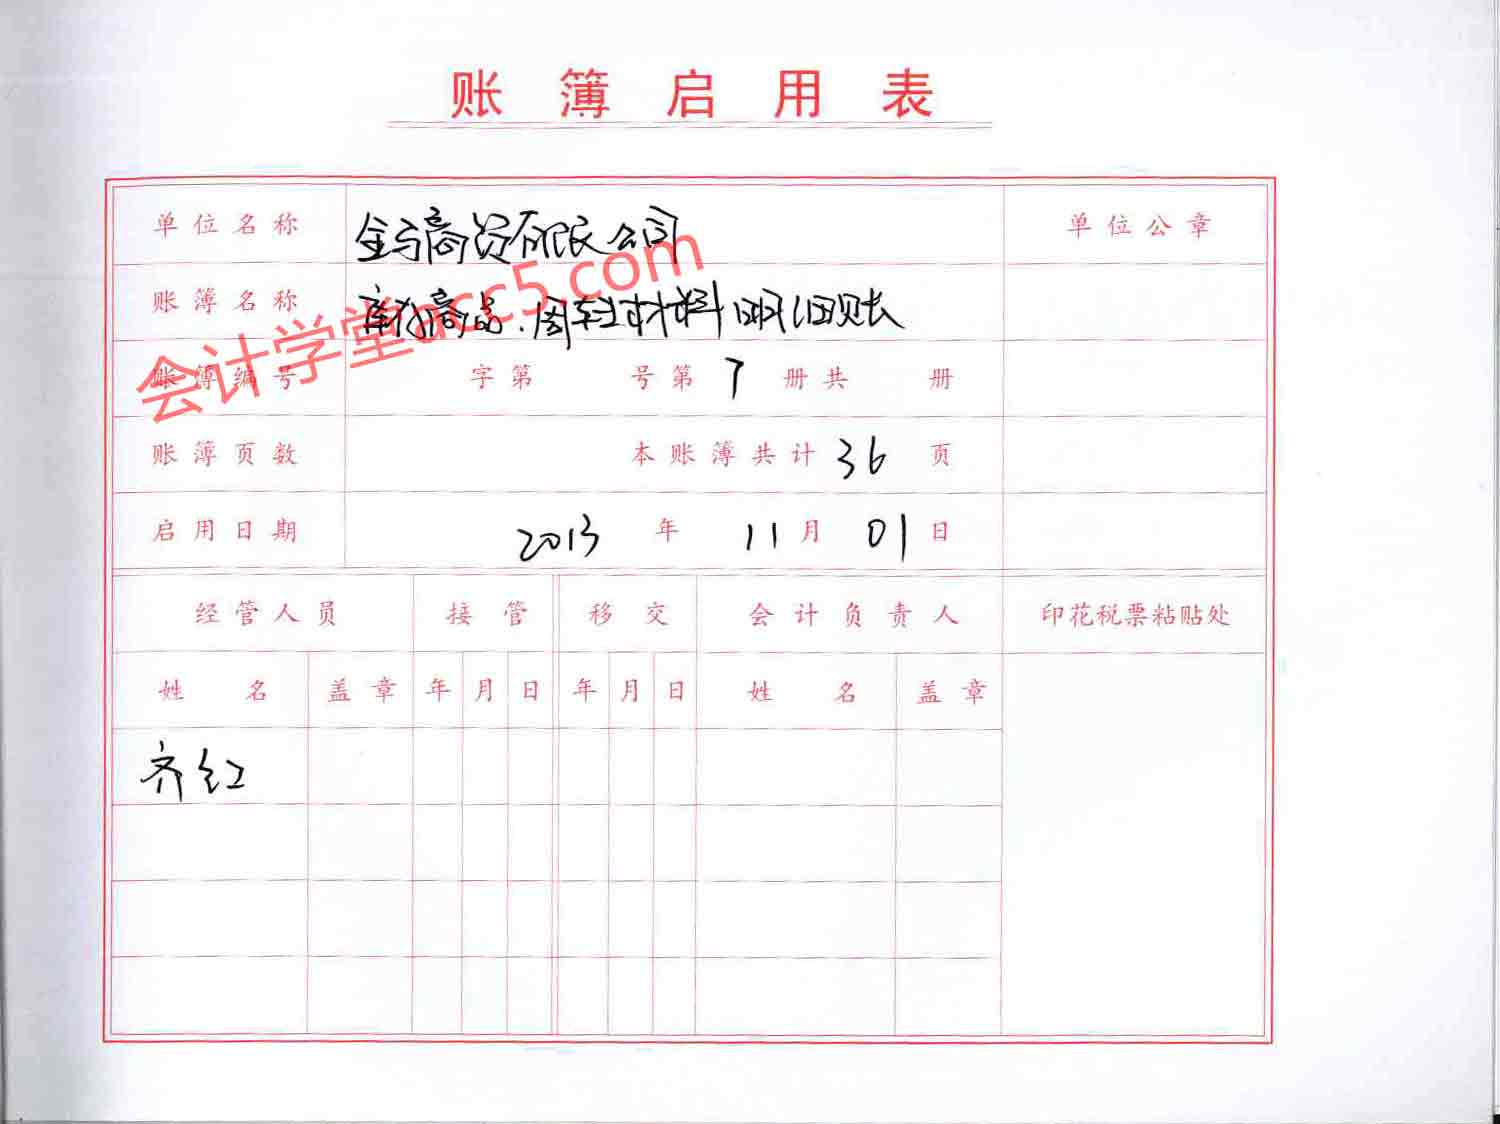 账簿启用表
单位名称 金马商贸有限公司 单位公章
账簿名称 库存商品、周转材料明细账
账簿编号 字第 号第 7 册共 册
账簿页数 本账簿共计 36 页
启用日期 2013 年 11 月 01 日
经管人员 接管 移交 会计负责人 印花税票粘贴处
姓名 盖章 年 月 日 年 月 日 姓名 盖章
齐红
会计学堂acc5.com